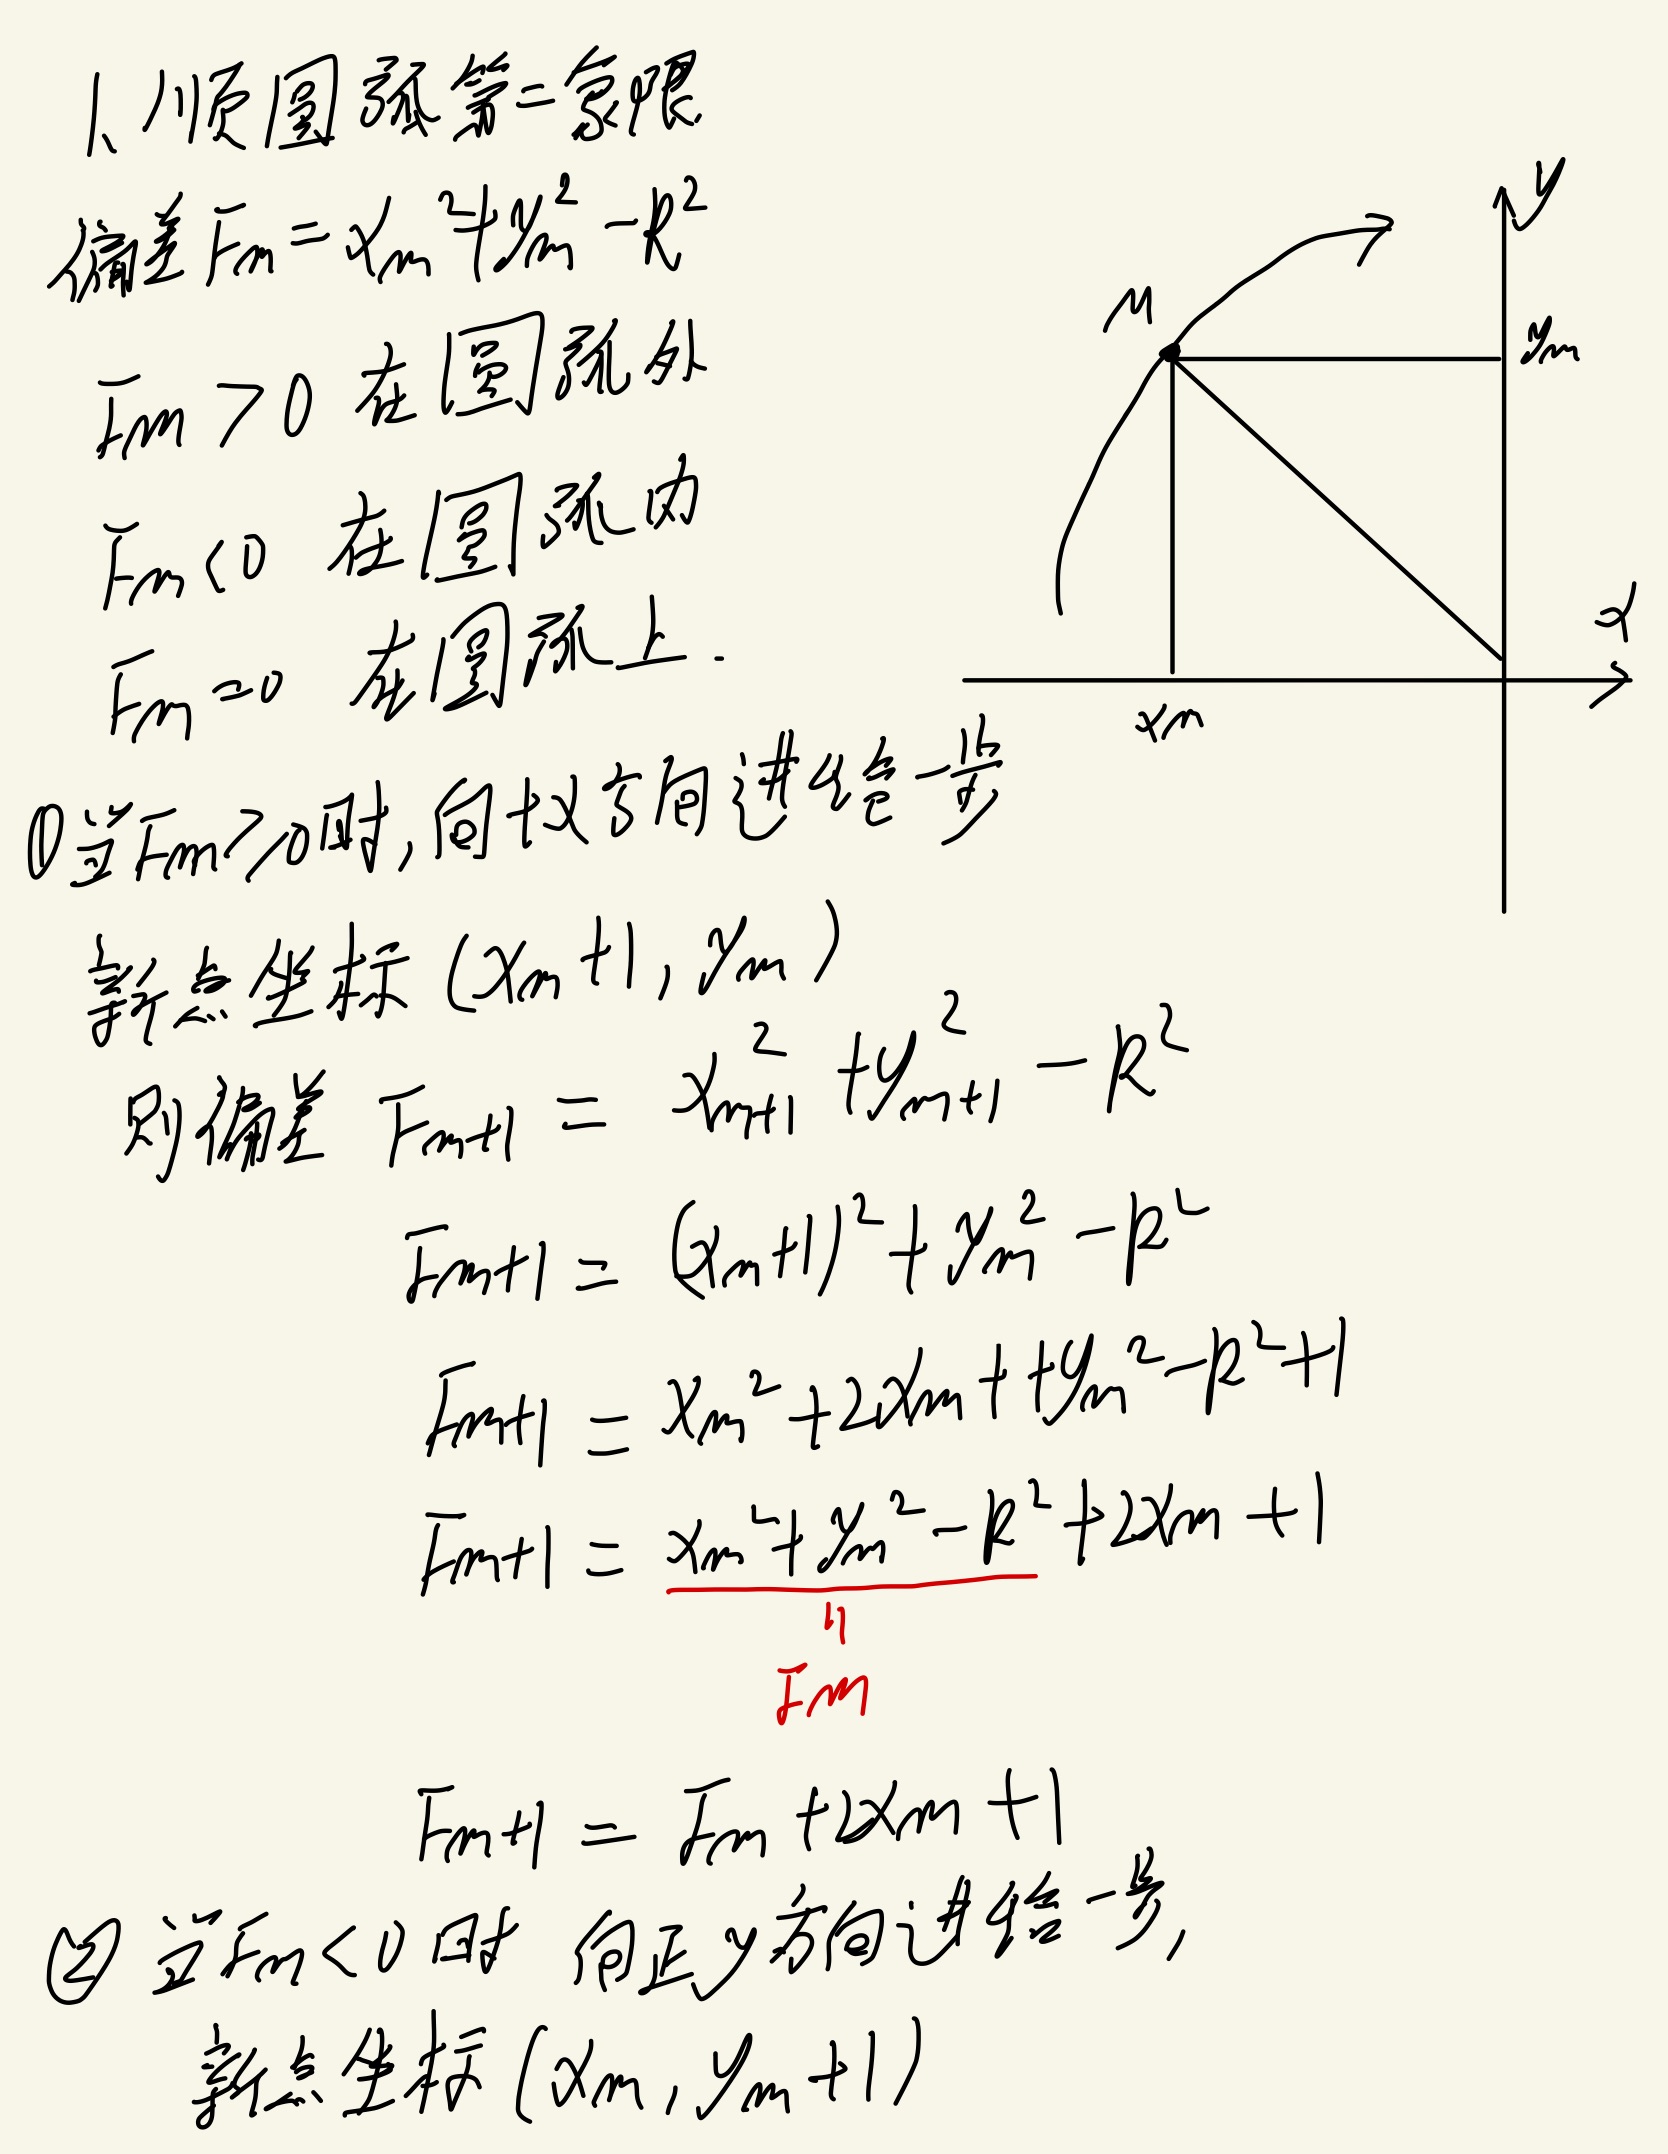 1、顺圆弧第二象限
偏差 Fm = xm² + ym² - R²
Fm > 0 在圆弧外
Fm < 0 在圆弧内
Fm = 0 在圆弧上.
y
M
ym
x
xm
①当Fm≥0时,向+x方向进给一步
新点坐标 (xm+1, ym)
则偏差 Fm+1 = xm+1² + ym+1² - R²
Fm+1 = (xm+1)² + ym² - R²
Fm+1 = xm² + 2xm + + ym² - R² + 1
Fm+1 = xm² + ym² - R² + 2xm + 1
=
Fm
Fm+1 = Fm + 2xm + 1
② 当Fm < 0 时 向正y方向进给一步,
新点坐标 (xm, ym+1)